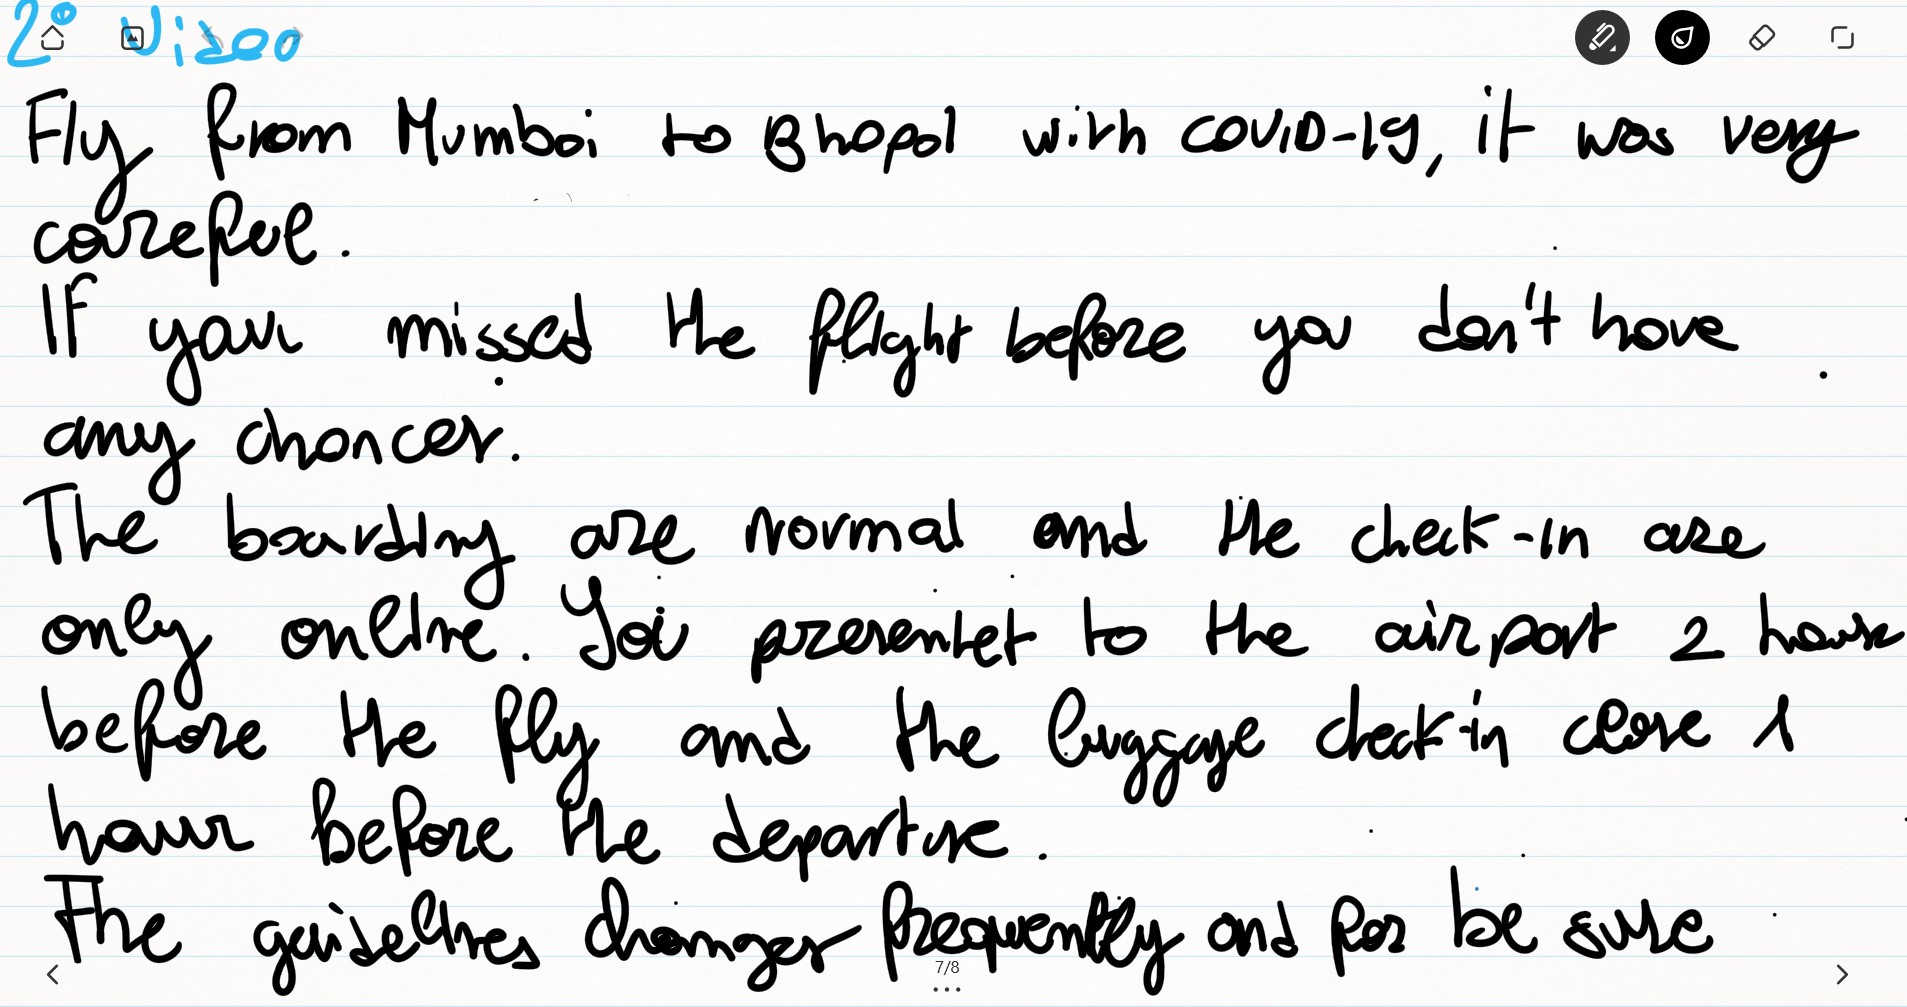 2° Video
Fly from Mumbai to Bhopal with COVID-19, it was very
careful.
If your missed the flight before you don't have
any chances.
The boarding are normal and the check-in are
only online. You presentet to the airport 2 hour
before the fly and the luggage check-in close 1
hour before the departure.
The guidelines changes frequently and for be sure
7/8